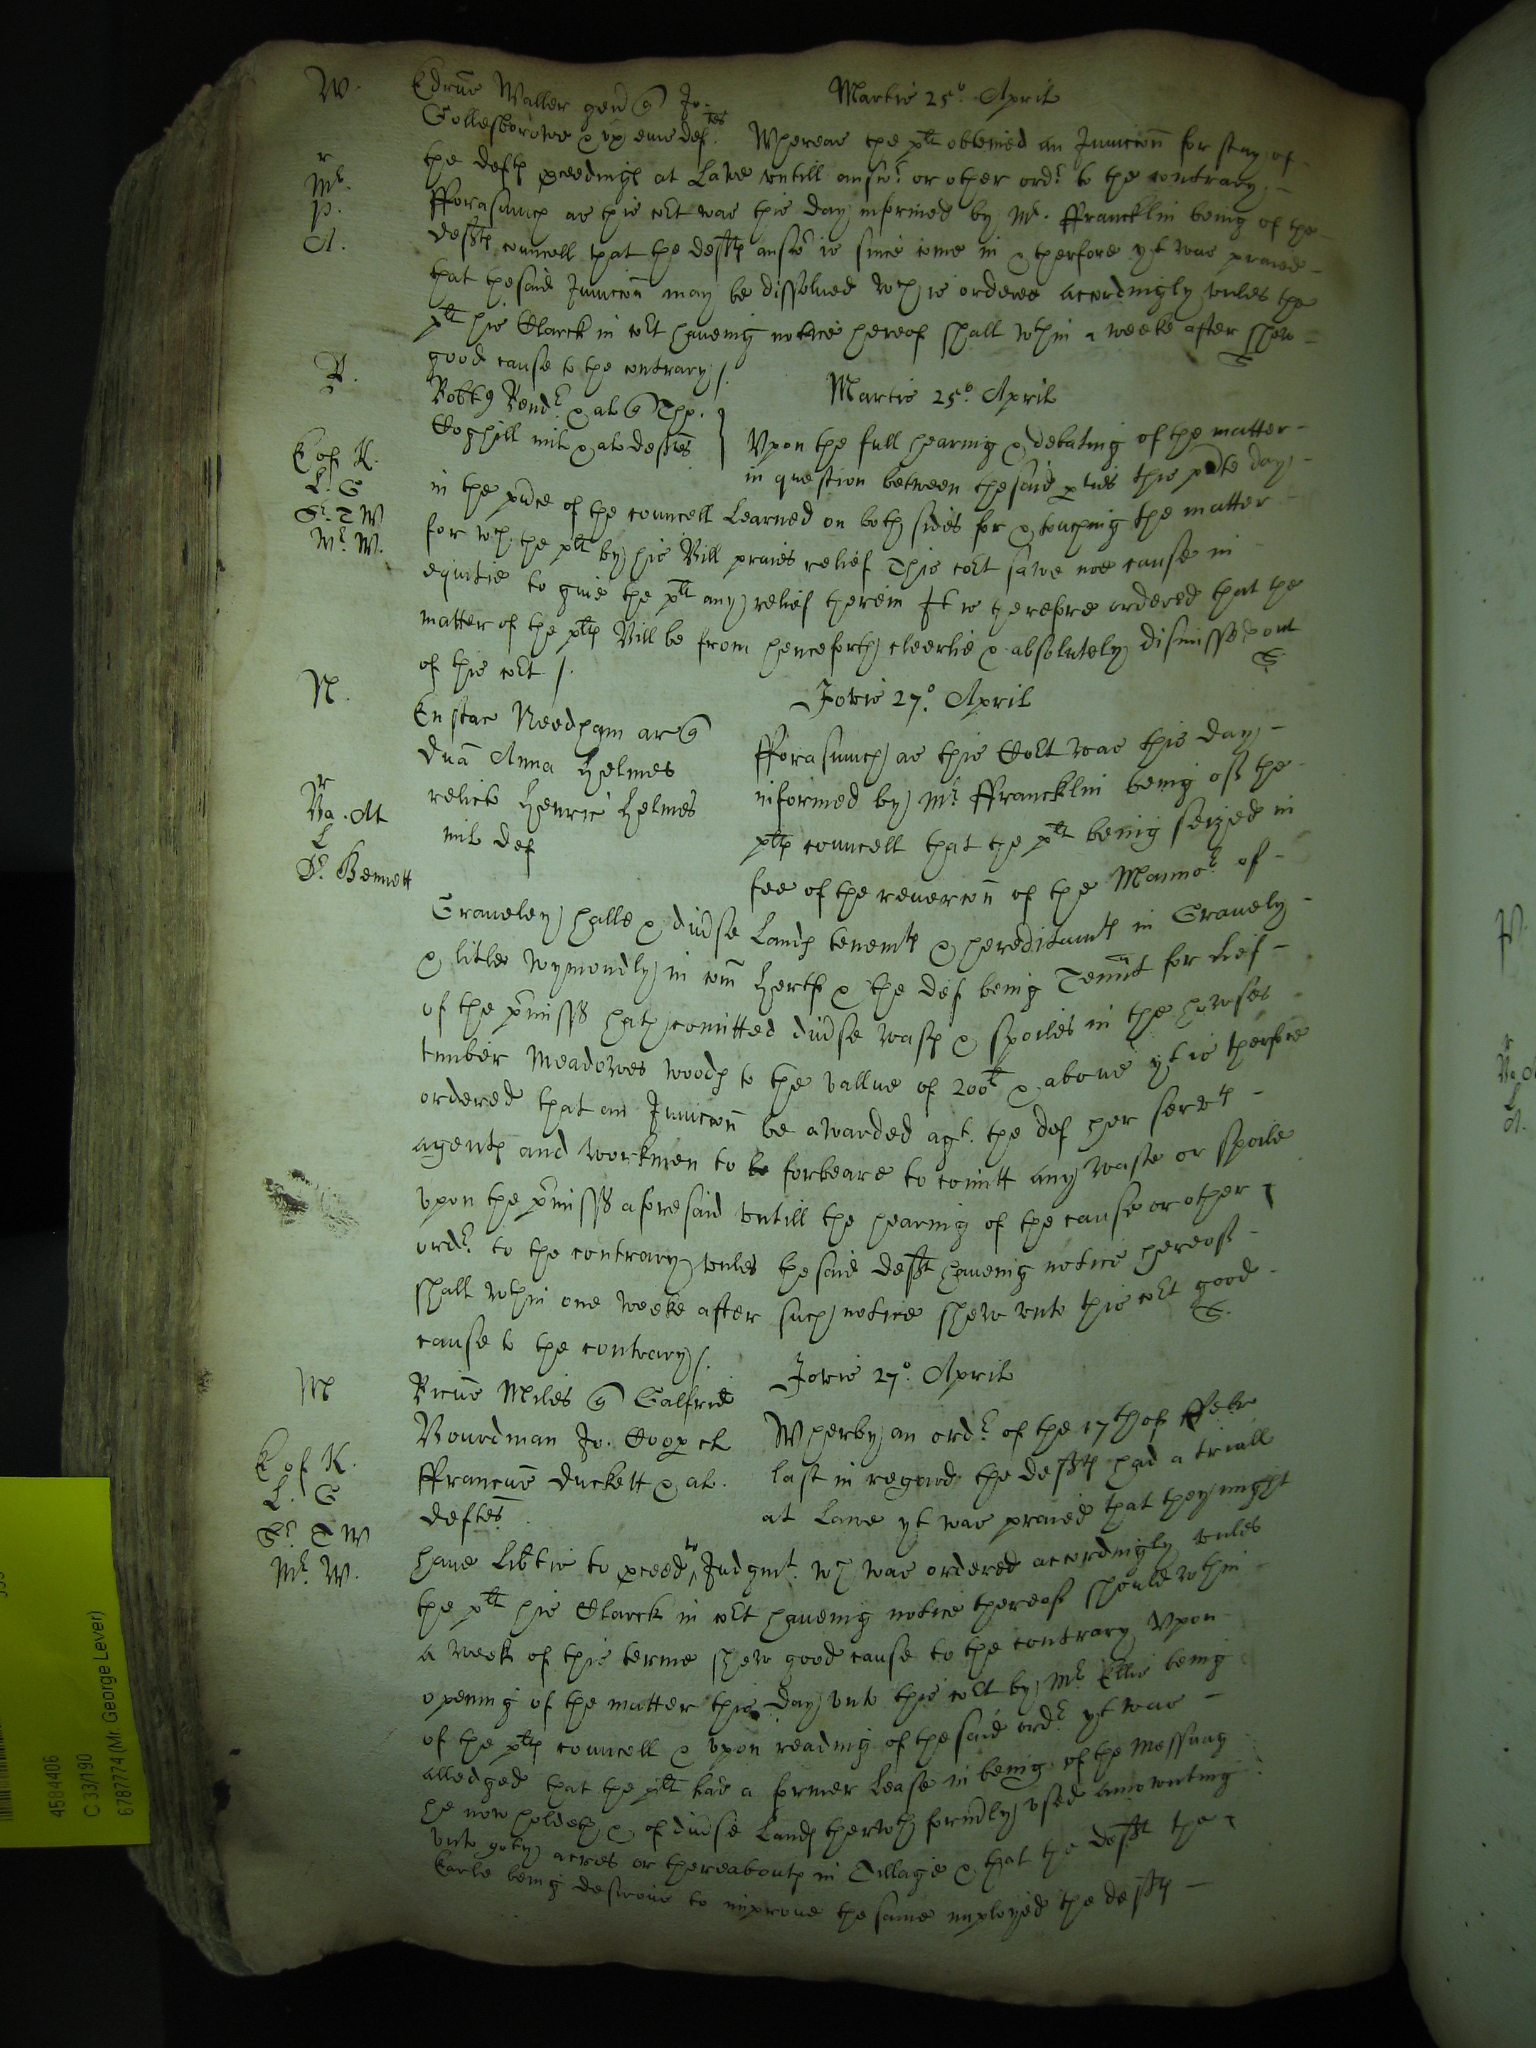 W. Edrūs Waller gen q Jo. Martis 25° April
Gollesborowe & ux eius def.tes Whereas the plt obteined an Iniuncc̄on for stay of
the deftes p̱ceedinges at Lawe vntill answ.r or other ord.r to the contrary
r
Mr. fforasmuch as this cort was this day informed by Mr. ffrancklin being of the
p.
A. deftes councell that the deftes answ.r is since come in & therfore yt was praied
that the said Iniuncc̄on may be dissolued wch is ordered accordingly vnles the
plt his Clarck in cort haueing notice hereof shall wthin a weeke after shew
good cause to the contrary /.
Martis 25°. April
Robtꝰ & al q Tho.
Coghill mil & al deftes Vpon the full hearing & debating of the matter
in question between the said p̱ties this p̄nte day
E of K.
L. G in the p̄nce of the councell Learned on both sides for & touching the matter
Sr. T W for wch the plt by his Bill praies relief This cort sawe noe cause in
Mr. W. equitie to giue the plt any relief therein It is therefore ordered that the
matter of the pltes Bill be from henceforth cleerlie & absolutely dismissed out
of this cort /.
N. Jovis 27°. April
Eustac Needham ar q
Dna Anna Helmes fforasmuch as this Cort was this day
relict Henrici Helmes informed by Mr ffrancklin being of the
r
Va. At
L mil def pltes councell that the plt being seized in
Sr. Bennett fee of the reuercōn of the Mannor of
Graueley halle & diu̱se Landes tenemtes & hereditamtes in Grauely
& litle Wymondly in com̄ Hertf & the def being Tennt for lief
of the p̱missꝭ hath com̄itted diu̱se wast & spoiles in the howses
timber meadowes woodes to the vallue of 200l & aboue yt is therfore
ordered that an Iniuncc̄on be awarded agt. the def her servtes
agentes and workmen to be forbeare to com̄itt any waste or spoile
vpon the p̱missꝭ aforesaid vntill the hearing of the cause or other
ord.r to the contrary vnles the said deft haueing notice hereof
shall wthin one weeke after such notice shew vnto this cort good
cause to the contrary /.
M Jovis 27°. April
Ricūs Miles q Galfrid
Bourdman Jo. Coop̱ et Wherby an ord.r of the 17th of ffebr
E of K. ffrancūs Duckett & al. last in regard the deftes had a triall
L. G deftes at Lawe yt was praied that they might
Sr. T W haue liḇtie to p̱ceed to Iudgmt. wch was ordered accordingly vnles
Mr. W. the plt his Clarck in cort haueing notice thereof should wthin
a week of this terme shew good cause to the contrary Vpon
opening of the matter this day vnto this cort by Mr Ellis being
of the pltes councell & vpon reading of the said ord.r yt was
alledged that the plt had a former Lease in being of the messuag
he now holdeth & of diu̱se Landes therwth form̱ly vsed amownting
vnto acres or thereaboutes in Tillage & that the deft the
Earle being desirous to improue the same imployed the deftes
4584406
C 33/190
6787774 (Mr. George Lever)